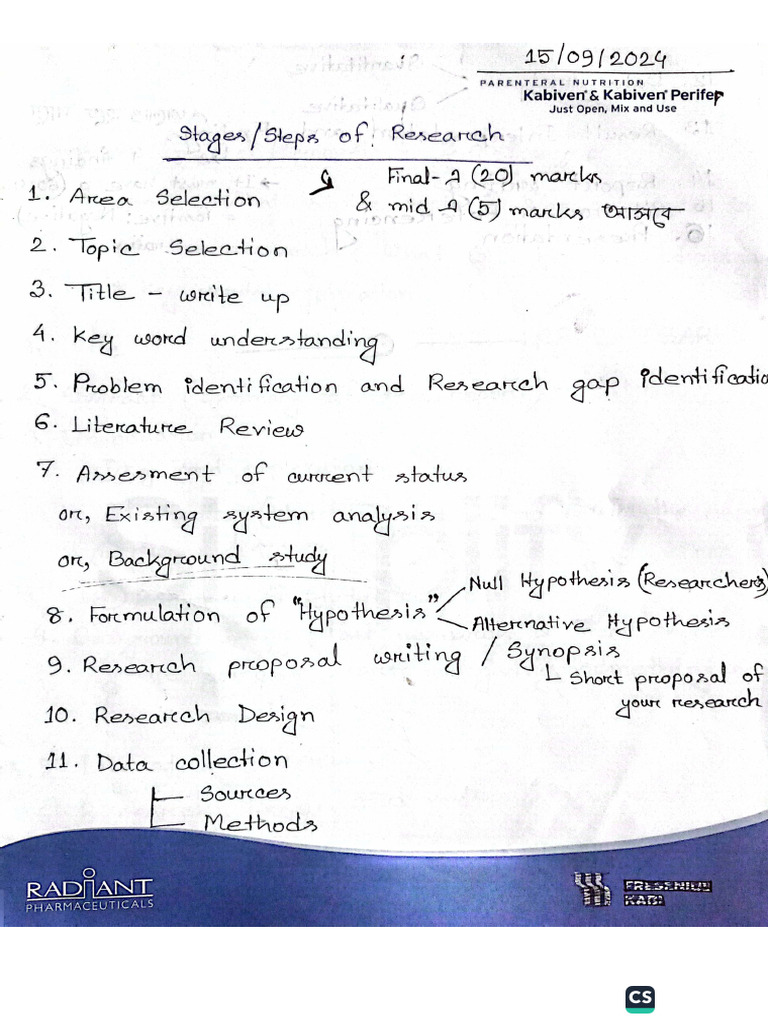 15/09/2024
PARENTERAL NUTRITION
Kabiven & Kabiven Perifer
Just Open, Mix and Use
Stages/Steps of Research
Final-এ (20) marks
& mid এ (5) marks আসবে
1. Area Selection
2. Topic Selection
3. Title - write up
4. Key word understanding
5. Problem identification and Research gap identificatio
6. Literature Review
7. Assesment of current status
or, Existing system analysis
or, Background study
8. Formulation of "Hypothesis"
Null Hypothesis (Researchers)
Alternative Hypothesis
9. Research proposal writing / Synopsis
Short proposal of
your research
10. Research Design
11. Data collection
Sources
Methods
RADIANT
PHARMACEUTICALS
FRESENIUS
KABI
CS